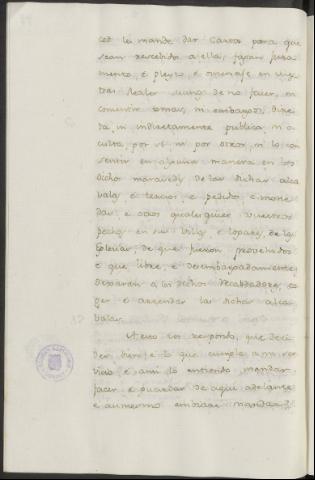 ced le mande dar carta para que
sean rescebidos a ella, fagan jura
mento, e pleyto e omenaje en vues
tras Reales manos de no facer, ni
consentir tomas, ni embargos, dire
ta ni indirectamente publica ni o
culta, por si ni por otros, ni lo con
sentir en alguna manera en los
dichos maravedis de las dichas alca
valas e tercias e pedidos e mone
das, e otros qualesquier vuestros
pechos en sus villas e logares, de las
Eglesias, de que fueren proveidos
e que libre, e desembargadamente
dexarán a los dichos Recabdadores, co
ger e arrendar las dichas alca
balas.
A esto vos respondo, que deci
des bien, e lo que cumple a mi ser
vicio e ansi lo entiendo mandar
facer e guardar de aqui adelante
e ansimesmo embiar mandar